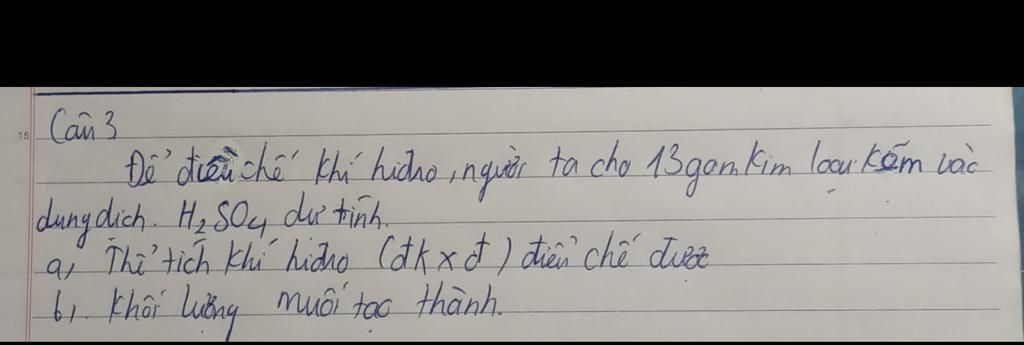 15
Câu 3
Để điều chế khí hiđro, người ta cho 13 gam kim loại kẽm vào
dung dịch. H₂SO₄ dư tính.
a, Thể tích khí hiđro (đk x đ) điều chế được
b, . Khối lượng muối tạo thành.